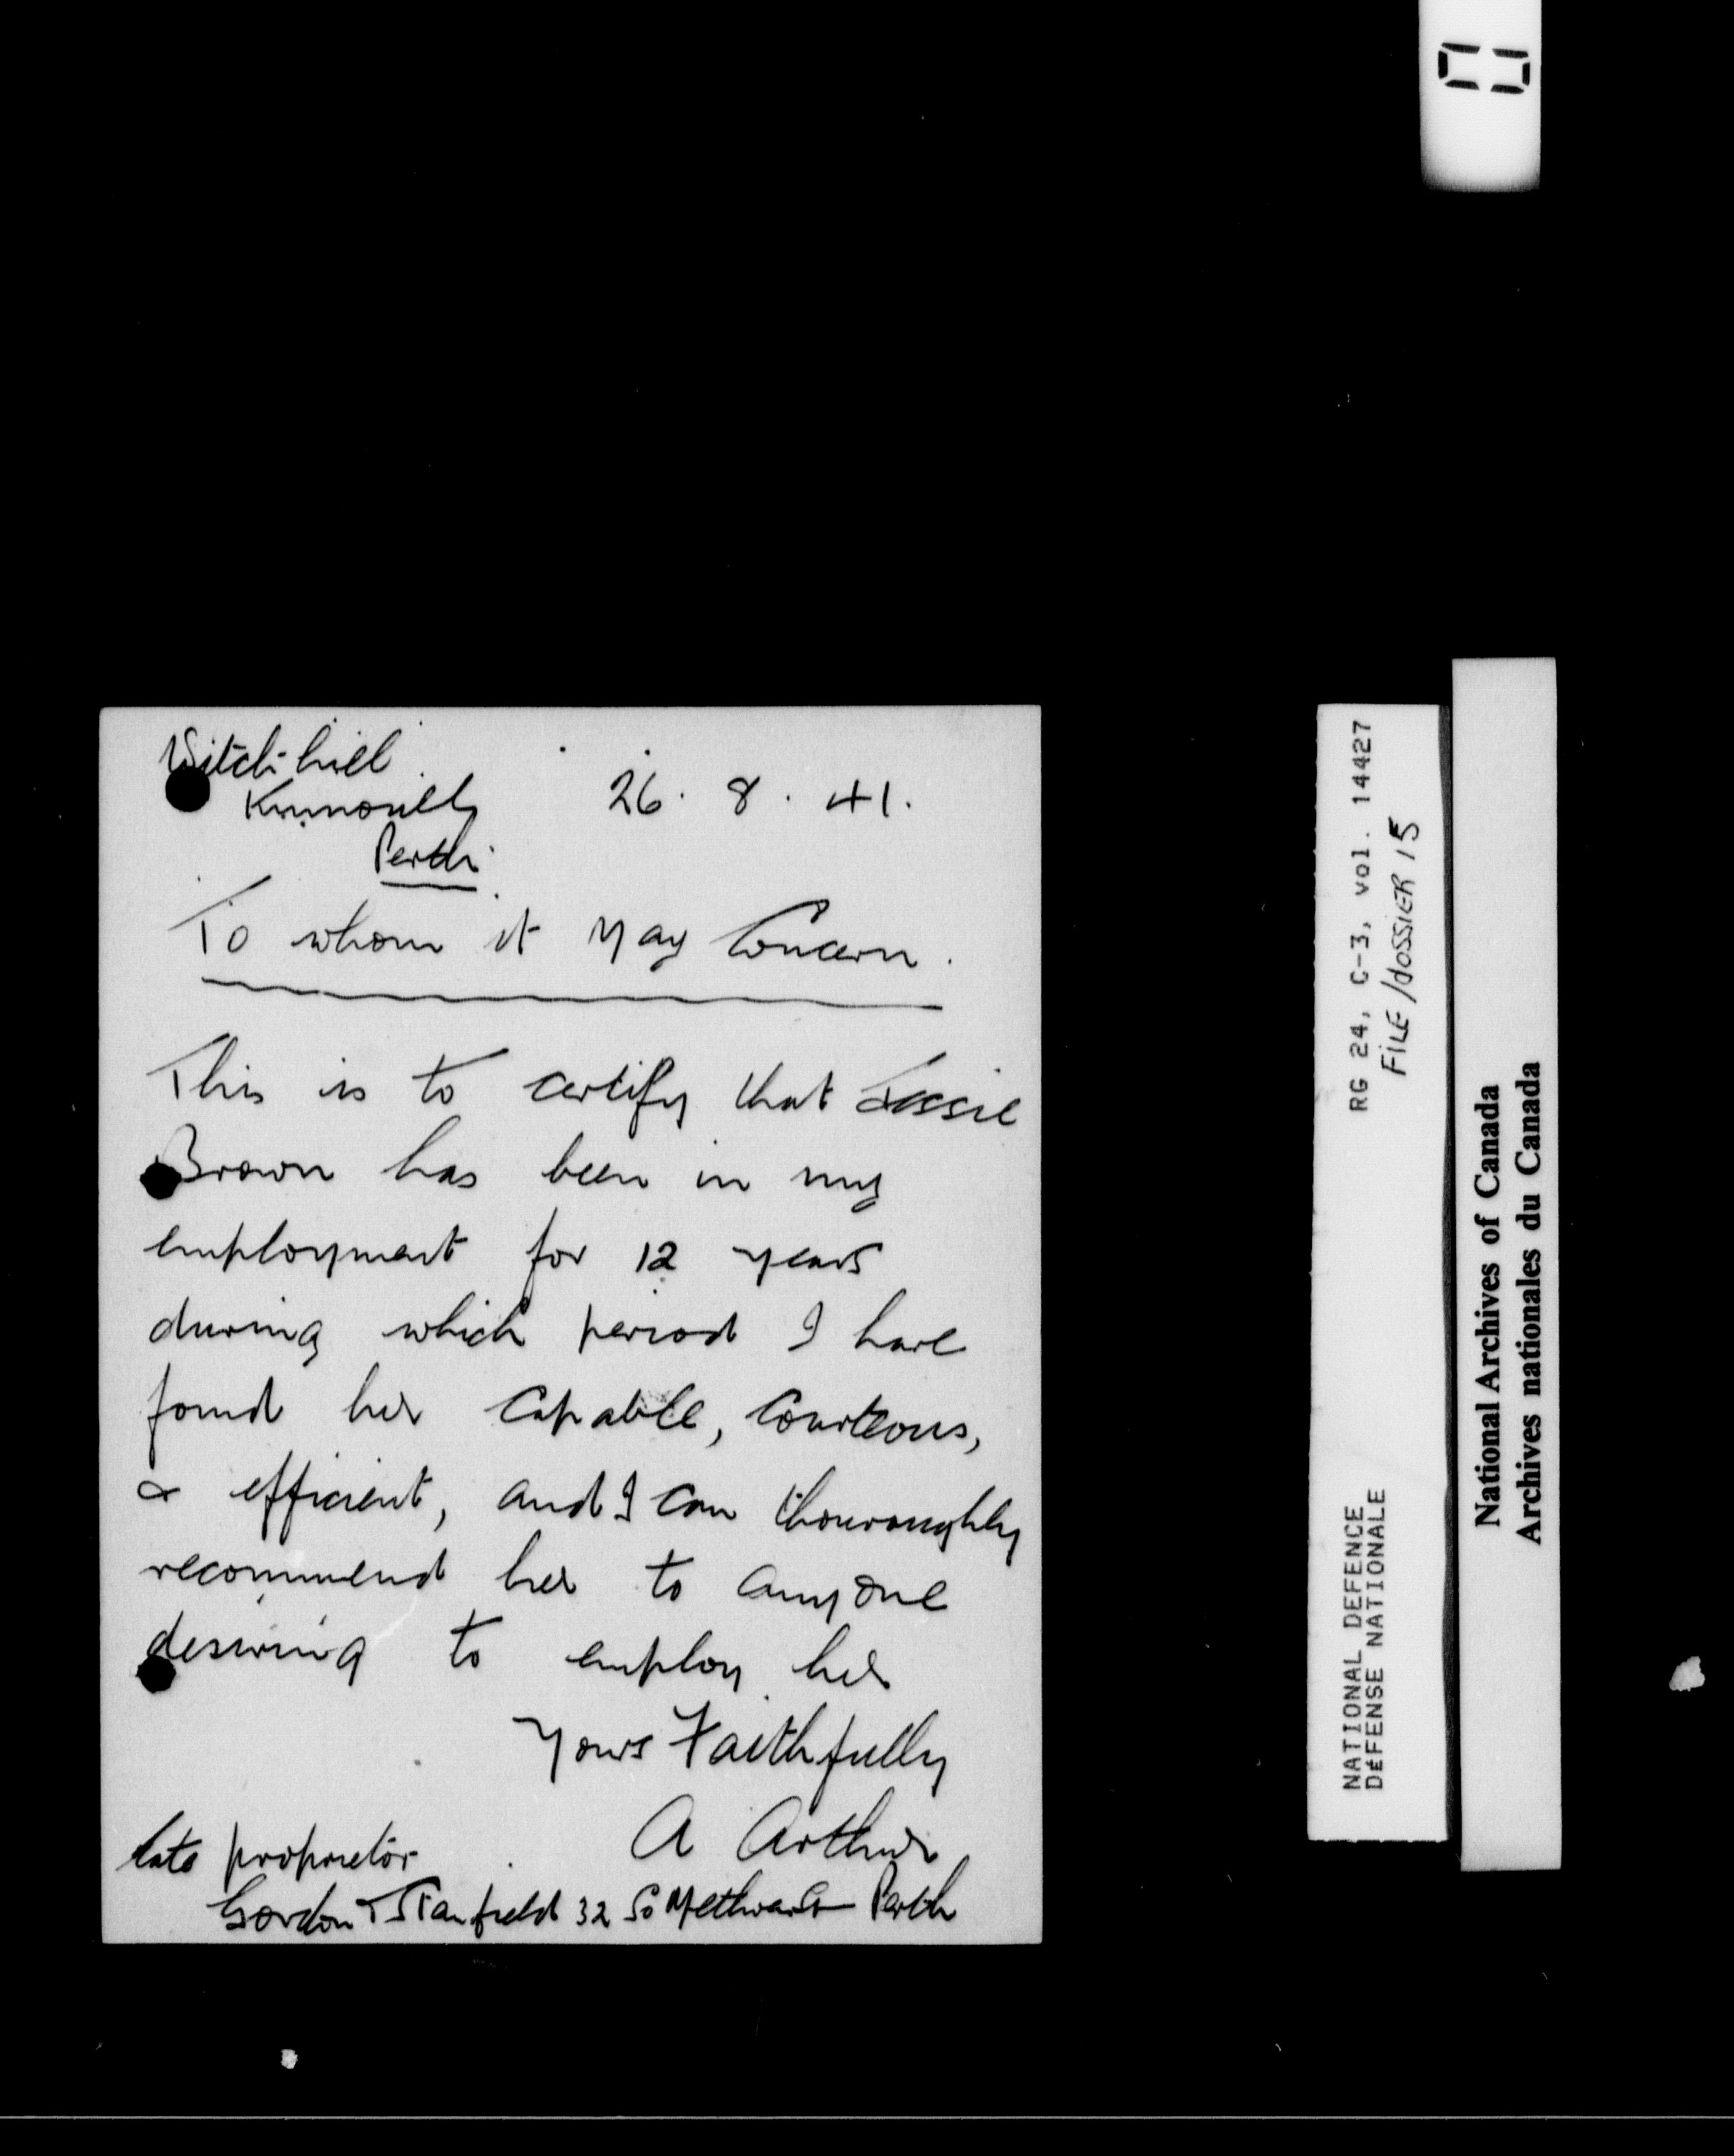 Witch-hill
Kinnoull 26. 8. 41.
Perth
To whom it May Concern.
This is to certify that Jessie
Brown has been in my
employment for 12 years
during which period I have
found her Capable, Courteous,
& efficient, and I can thouroughly
recommend her to anyone
desiring to employ her
Yours Faithfully
A Arthur
late proprietor
Gordon & Stanfield 32 So Methven St Perth
RG 24, C-3, vol. 14427
FILE/dOSSIER 15
NATIONAL DEFENCE
DÉFENSE NATIONALE
National Archives of Canada
Archives nationales du Canada